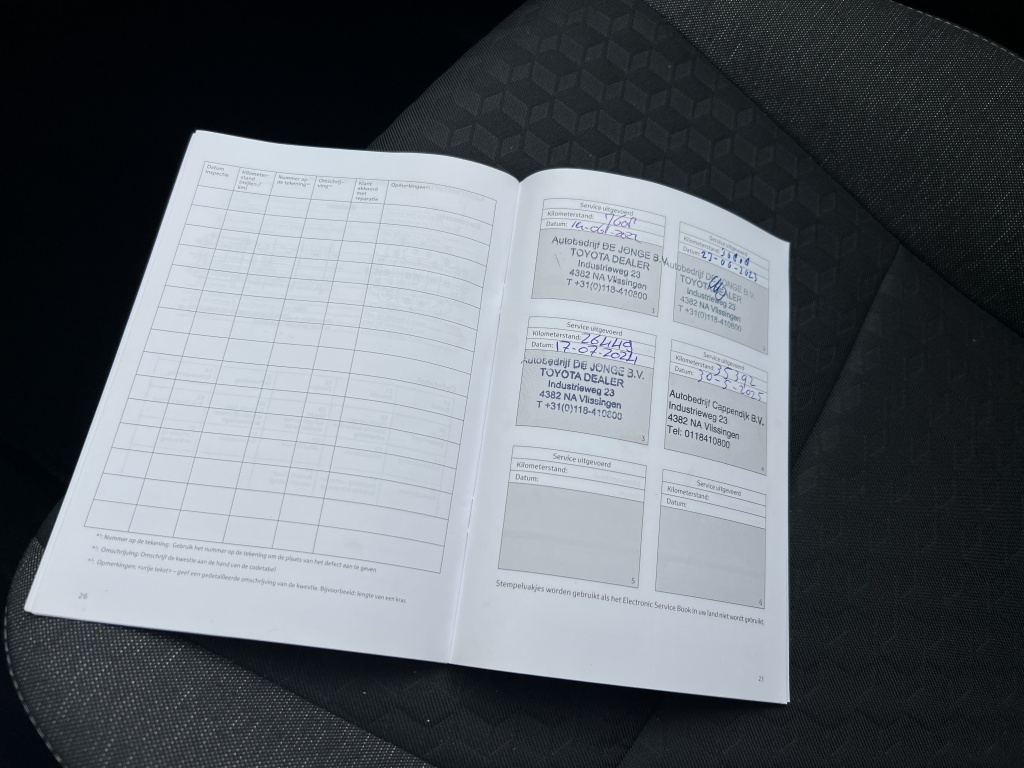 Datum inspectie
Kilometer-stand (mijlen / km)
Nummer op de tekening *¹
Omschrij-ving *²
Klant akkoord met reparatie
Opmerkingen *³
*¹: Nummer op de tekening: Gebruik het nummer op de tekening om de plaats van het defect aan te geven
*²: Omschrijving: Omschrijf de kwestie aan de hand van de codetabel
*³: Opmerkingen: <vrije tekst> – geef een gedetailleerde omschrijving van de kwestie. Bijvoorbeeld: lengte van een kras
26
Service uitgevoerd
Kilometerstand:
Datum:
Autobedrijf DE JONGE B.V.
TOYOTA DEALER
Industrieweg 23
4382 NA Vlissingen
T +31(0)118-410800
1
Service uitgevoerd
Kilometerstand:
Datum: 23-06-2023
Autobedrijf DE JONGE B.V.
TOYOTA DEALER
Industrieweg 23
4382 NA Vlissingen
T +31(0)118-410800
2
Service uitgevoerd
Kilometerstand: 26449
Datum: 17-07-2024
Autobedrijf DE JONGE B.V.
TOYOTA DEALER
Industrieweg 23
4382 NA Vlissingen
T +31(0)118-410800
3
Service uitgevoerd
Kilometerstand: 35392
Datum: 30-5-2025
Autobedrijf Cappendijk B.V.
Industrieweg 23
4382 NA Vlissingen
Tel: 0118410800
4
Service uitgevoerd
Kilometerstand:
Datum:
5
Service uitgevoerd
Kilometerstand:
Datum:
6
Stempelvakjes worden gebruikt als het Electronic Service Book in uw land niet wordt gebruikt.